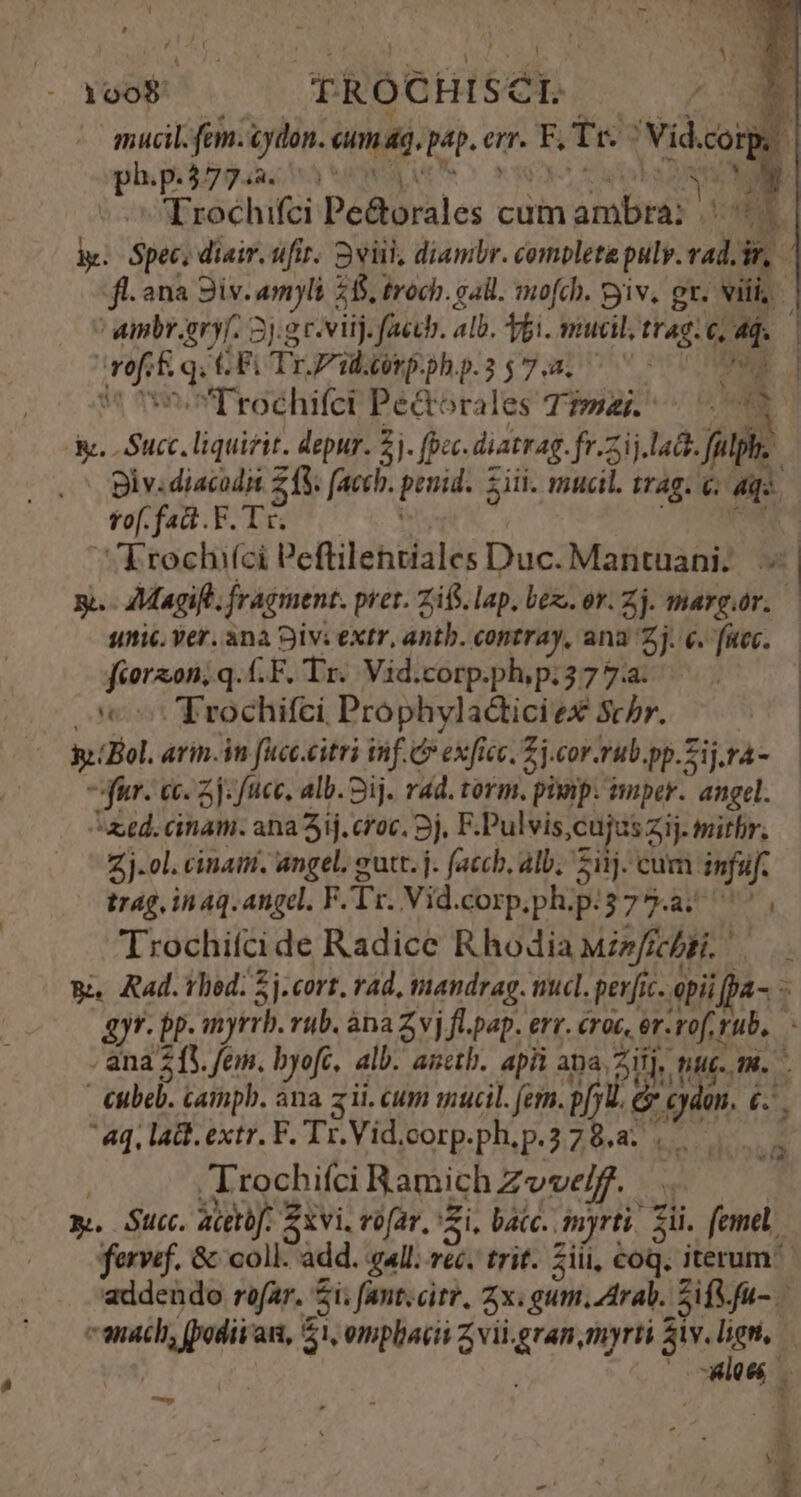 1008 TROCHISCI.
mucil. ſem. cydon. cum aq. pap. err. F. Tr. Vid. corp.
ph. p. 377. a.
Trochiſci Pectorales cum ambra:
℞. Spec. diair. ſiſt. ℈viii, diambr. completæ pulv. rad. ir.
fl. ana ℈iv. amyli ʒß, troch. gall. moſch. ℈iv, gr. viii,
ambr. gryſ. ℈j. gr. viij. ſacch. alb. ℔i. mucil. trag. c. aq.
roſ. ſ. q. f. F. Tr. Vid. corp. ph. p. 357. a.
Trochiſci Pectorales Timæi.
℞. Succ. liquirit. depur. ℥j. ſpec. diatrag. fr. ʒij. lact. ſulph.
℈iv. diacodii ʒß. ſacch. penid. ℥iii. mucil. trag. c. aq.
roſ. fact. F. Tr.
Trochiſci Peſtilentiales Duc. Mantuani.
℞. Magiſt. fragment. pret. ʒiß. lap. bez. or. ʒj. marg. or.
unic. ver. ana ℈iv. extr. anth. contray. ana ʒj. c. ſucc.
ſcorzon. q. ſ. F. Tr. Vid. corp. ph. p. 377. a.
Trochiſci Prophylactici ex Schr.
℞. Bol. arm. in ſucc. citri inf. & exſicc. ℥j. cor. rub. pp. ℥ij. ra-
ſur. cc. ʒj. ſucc. alb. ℈ij. rad. torm. pimp. imper. angel.
zed. cinam. ana ʒij. croc. ℈j. F. Pulvis, cujus ʒij. mithr.
ʒj. ol. cinam. angel. gutt. j. ſacch. alb. ℥iij. cum infuſ.
trag. in aq. angel. F. Tr. Vid. corp. ph. p. 375. a.
Trochiſci de Radice Rhodia Minſichti.
℞. Rad. rhod. ℥j. cort. rad. mandrag. nucl. perſic. opii ſpa-
gyr. pp. myrrh. rub. ana ʒvj fl. pap. err. croc. or. roſ. rub.
ana ʒß. ſem. hyoſc. alb. aneth. apii ana ʒiij. nuc. m.
cubeb. camph. ana ʒii. cum mucil. ſem. pſyll. & cydon. c.
aq. lact. extr. F. Tr. Vid. corp. ph. p. 378. a.
Trochiſci Ramich Zvvelff.
℞. Succ. acetoſ. ℥xvi. roſar. ℥i. bacc. myrti ℥ii. ſemel
fervef. & coll. add. gall. rec. trit. ℥iii, coq. iterum
addendo roſar. ℥i. ſant. citr. ʒx. gum. Arab. ℥iß. ſu-
mach, ſpodii an. ℥i, omphacii ʒvii. gran. myrti ℥iv. lign.
aloes